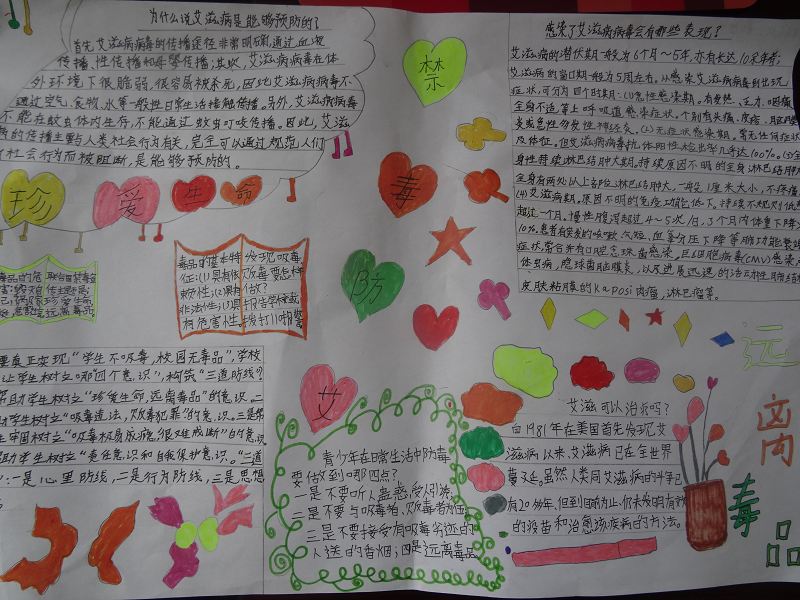 为什么说艾滋病是能够预防的?
首先,艾滋病病毒的传播途径非常明确,通过血液
传播,性传播和母婴传播;其次,艾滋病病毒在体
外环境下很脆弱,很容易被杀死,因此艾滋病病毒不
通过空气、食物、水等一般性日常生活接触传播。另外,艾滋病病毒
不能在蚊虫体内生存,不能通过蚊虫叮咬传播。因此,艾滋
的传播主要与人类社会行为有关,完全可以通过规范人们
社会行为而被阻断,是能够预防的。
珍
爱
生
命
禁
毒
防
艾
感染了艾滋病病毒会有哪些表现?
艾滋病的潜伏期一般为6个月~5年,亦有长达10余年者;
艾滋病的窗口期一般为5周左右。从感染艾滋病病毒到出现
症状,可分为四个时期:(1)急性感染期。有发热、乏力、咽痛、
全身不适等上呼吸道感染症状。个别有头痛、皮疹、脑膜
炎或急性多发性神经炎。(2)无症状感染期。常无任何症状
及体征。但艾滋病毒抗体阳性检出率几乎达100%。(3)全
身性持续淋巴结肿大期。持续原因不明的全身淋巴结肿大
全身有两处以上部位淋巴结肿大,一般1厘米大小,不疼痛
(4)艾滋病期。原因不明的免疫功能低下。持续不规则低热
超过一个月。慢性腹泻超过4~5次/日,3个月内体重下降
10%。患者有突发的咳嗽、气短、血氧分压下降等肺功能衰竭
症状,常合并有口腔念珠菌感染,巨细胞病毒(CMV)感染
体虫病,隐球菌脑膜炎,以及进展迅速的活动性肺结核
皮肤粘膜的Kaposi肉瘤,淋巴瘤等。
毒品的基本特
征:(1)具有依
赖性;(2)具有
非法性;(3)具
有危害性。
发现吸毒
贩毒要怎样
做?
报告学校或
拨打110报警
要真正实现“学生不吸毒,校园无毒品”,学校
让学生树立哪“四个意识”,构筑“三道防线”?
帮助学生树立“珍爱生命,远离毒品”的意识。二
学生树立“吸毒违法,贩毒犯罪”的意识。三是帮
生牢固树立“吸毒极易成瘾,很难戒断”的意识
帮助学生树立“责任意识和自我保护意识。”三道
:一是心里防线,二是行为防线,三是思想
青少年在日常生活中防毒
要做到哪四点?
一是不要听人蛊惑,受人引诱,
二是不要与吸毒者、贩毒者为伍
三是不要接受有吸毒劣迹的
人送的香烟;四是远离毒品
艾滋可以治疗吗?
自1981年在美国首先发现艾
滋病以来,艾滋病已在全世界
蔓延。虽然人类同艾滋病的斗争已
有20余年,但到目前为止,仍未发明有效
的疫苗和治愈该疾病的方法。
远
离
毒
品